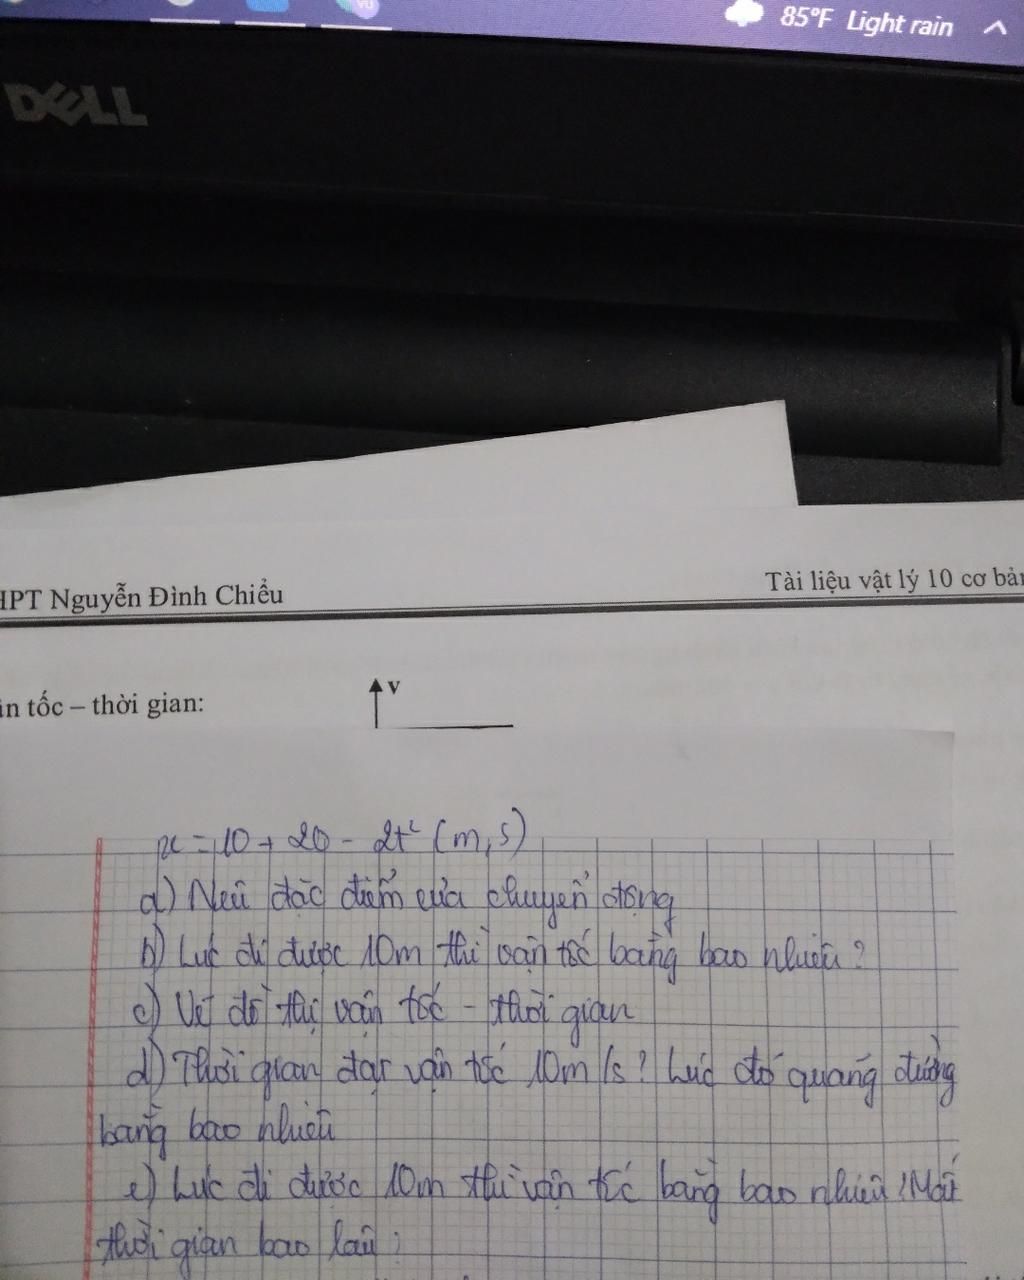 VU
85°F Light rain
DELL
HPT Nguyễn Đình Chiểu
Tài liệu vật lý 10 cơ bản
n tốc – thời gian:
v
x = 10 + 20 - 2t² (m, s)
a) Nêu đặc điểm của chuyển động
b) Lúc đi được 10m thì vận tốc bằng bao nhiêu?
c) Vẽ đồ thị vận tốc - thời gian
d) Thời gian đạt vận tốc 10m/s? Lúc đó quãng đường
bằng bao nhiêu
e) Lúc đi được 10m thì vận tốc bằng bao nhiêu? Mất
thời gian bao lâu?